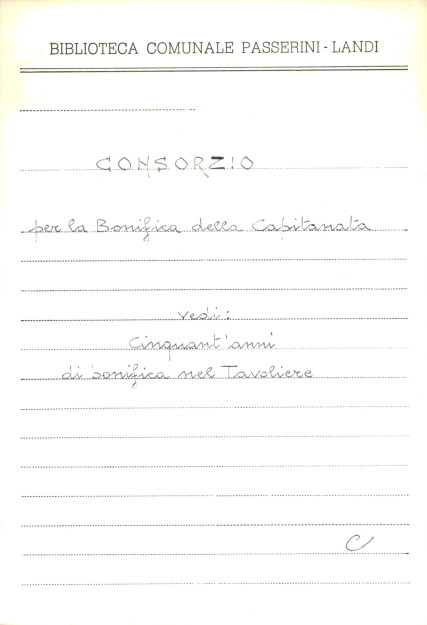 BIBLIOTECA COMUNALE PASSERINI - LANDI
CONSORZIO
per la Bonifica della Capitanata
vedi:
Cinquant'anni
di bonifica nel Tavoliere
C